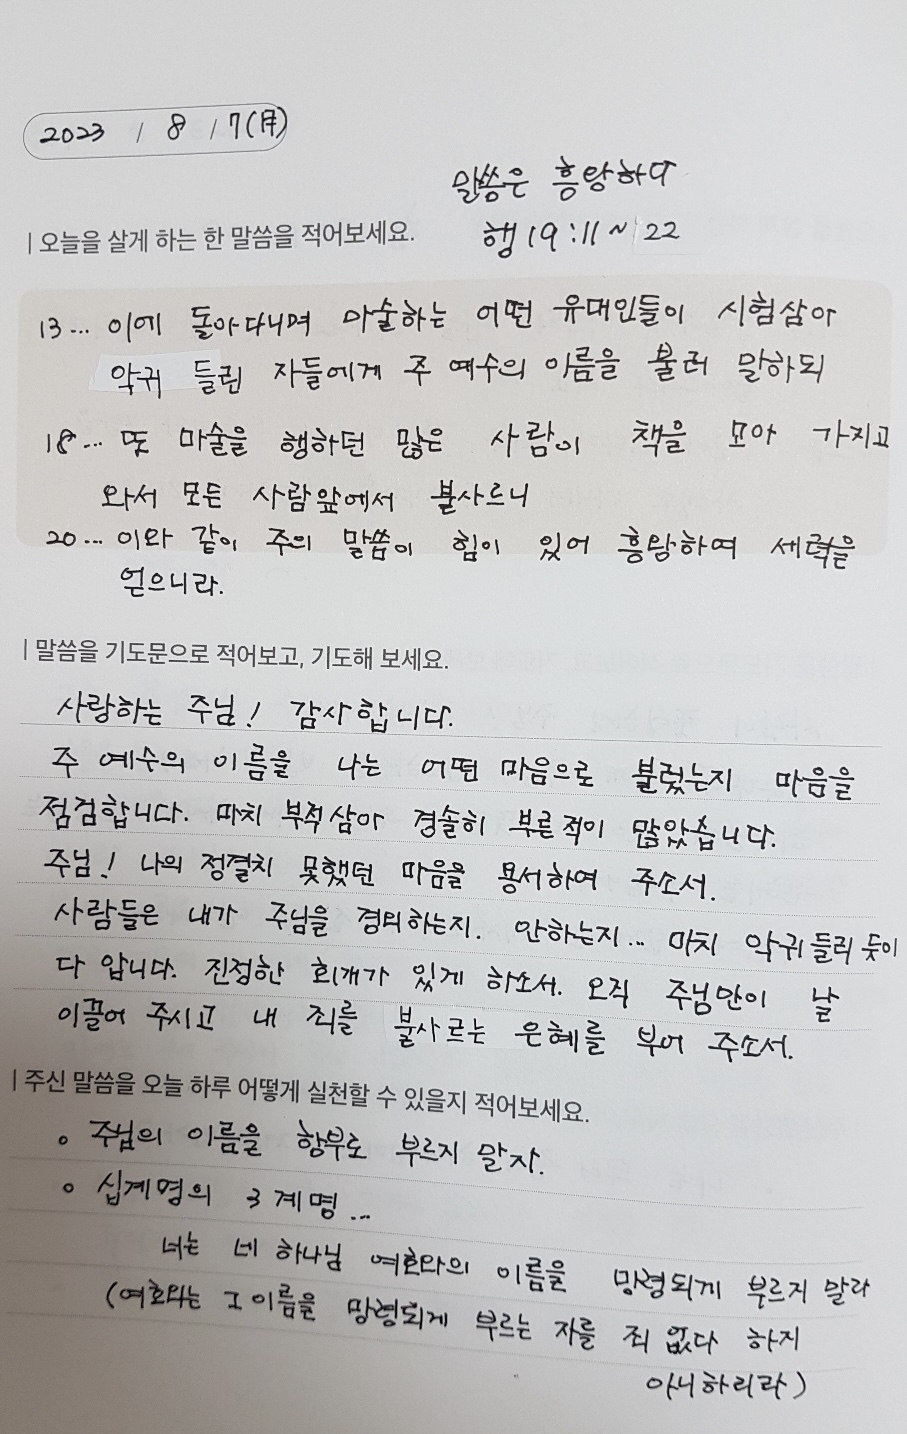 2023 / 8 / 7(月)
말씀은 흥왕하다
| 오늘을 살게 하는 한 말씀을 적어보세요.
행19:11~22
13... 이에 돌아다니며 마술하는 어떤 유대인들이 시험삼아
악귀 들린 자들에게 주 예수의 이름을 불러 말하되
18... 또 마술을 행하던 많은 사람이 책을 모아 가지고
와서 모든 사람앞에서 불사르니
20... 이와 같이 주의 말씀이 힘이 있어 흥왕하여 세력을
얻으니라.
| 말씀을 기도문으로 적어보고, 기도해 보세요.
사랑하는 주님! 감사합니다.
주 예수의 이름을 나는 어떤 마음으로 불렀는지 마음을
점검합니다. 마치 부적삼아 경솔히 부른적이 많았습니다.
주님! 나의 정결치 못했던 마음을 용서하여 주소서.
사람들은 내가 주님을 경외하는지. 안하는지... 마치 악귀들리듯이
다 압니다. 진정한 회개가 있게 하소서. 오직 주님만이 날
이끌어 주시고 내 죄를 불사르는 은혜를 부어 주소서.
| 주신 말씀을 오늘 하루 어떻게 실천할 수 있을지 적어보세요.
◦ 주님의 이름을 함부로 부르지 말자.
◦ 십계명의 3계명...
너는 네 하나님 여호와의 이름을 망령되게 부르지 말라
(여호와는 그 이름을 망령되게 부르는 자를 죄 없다 하지
아니하리라)